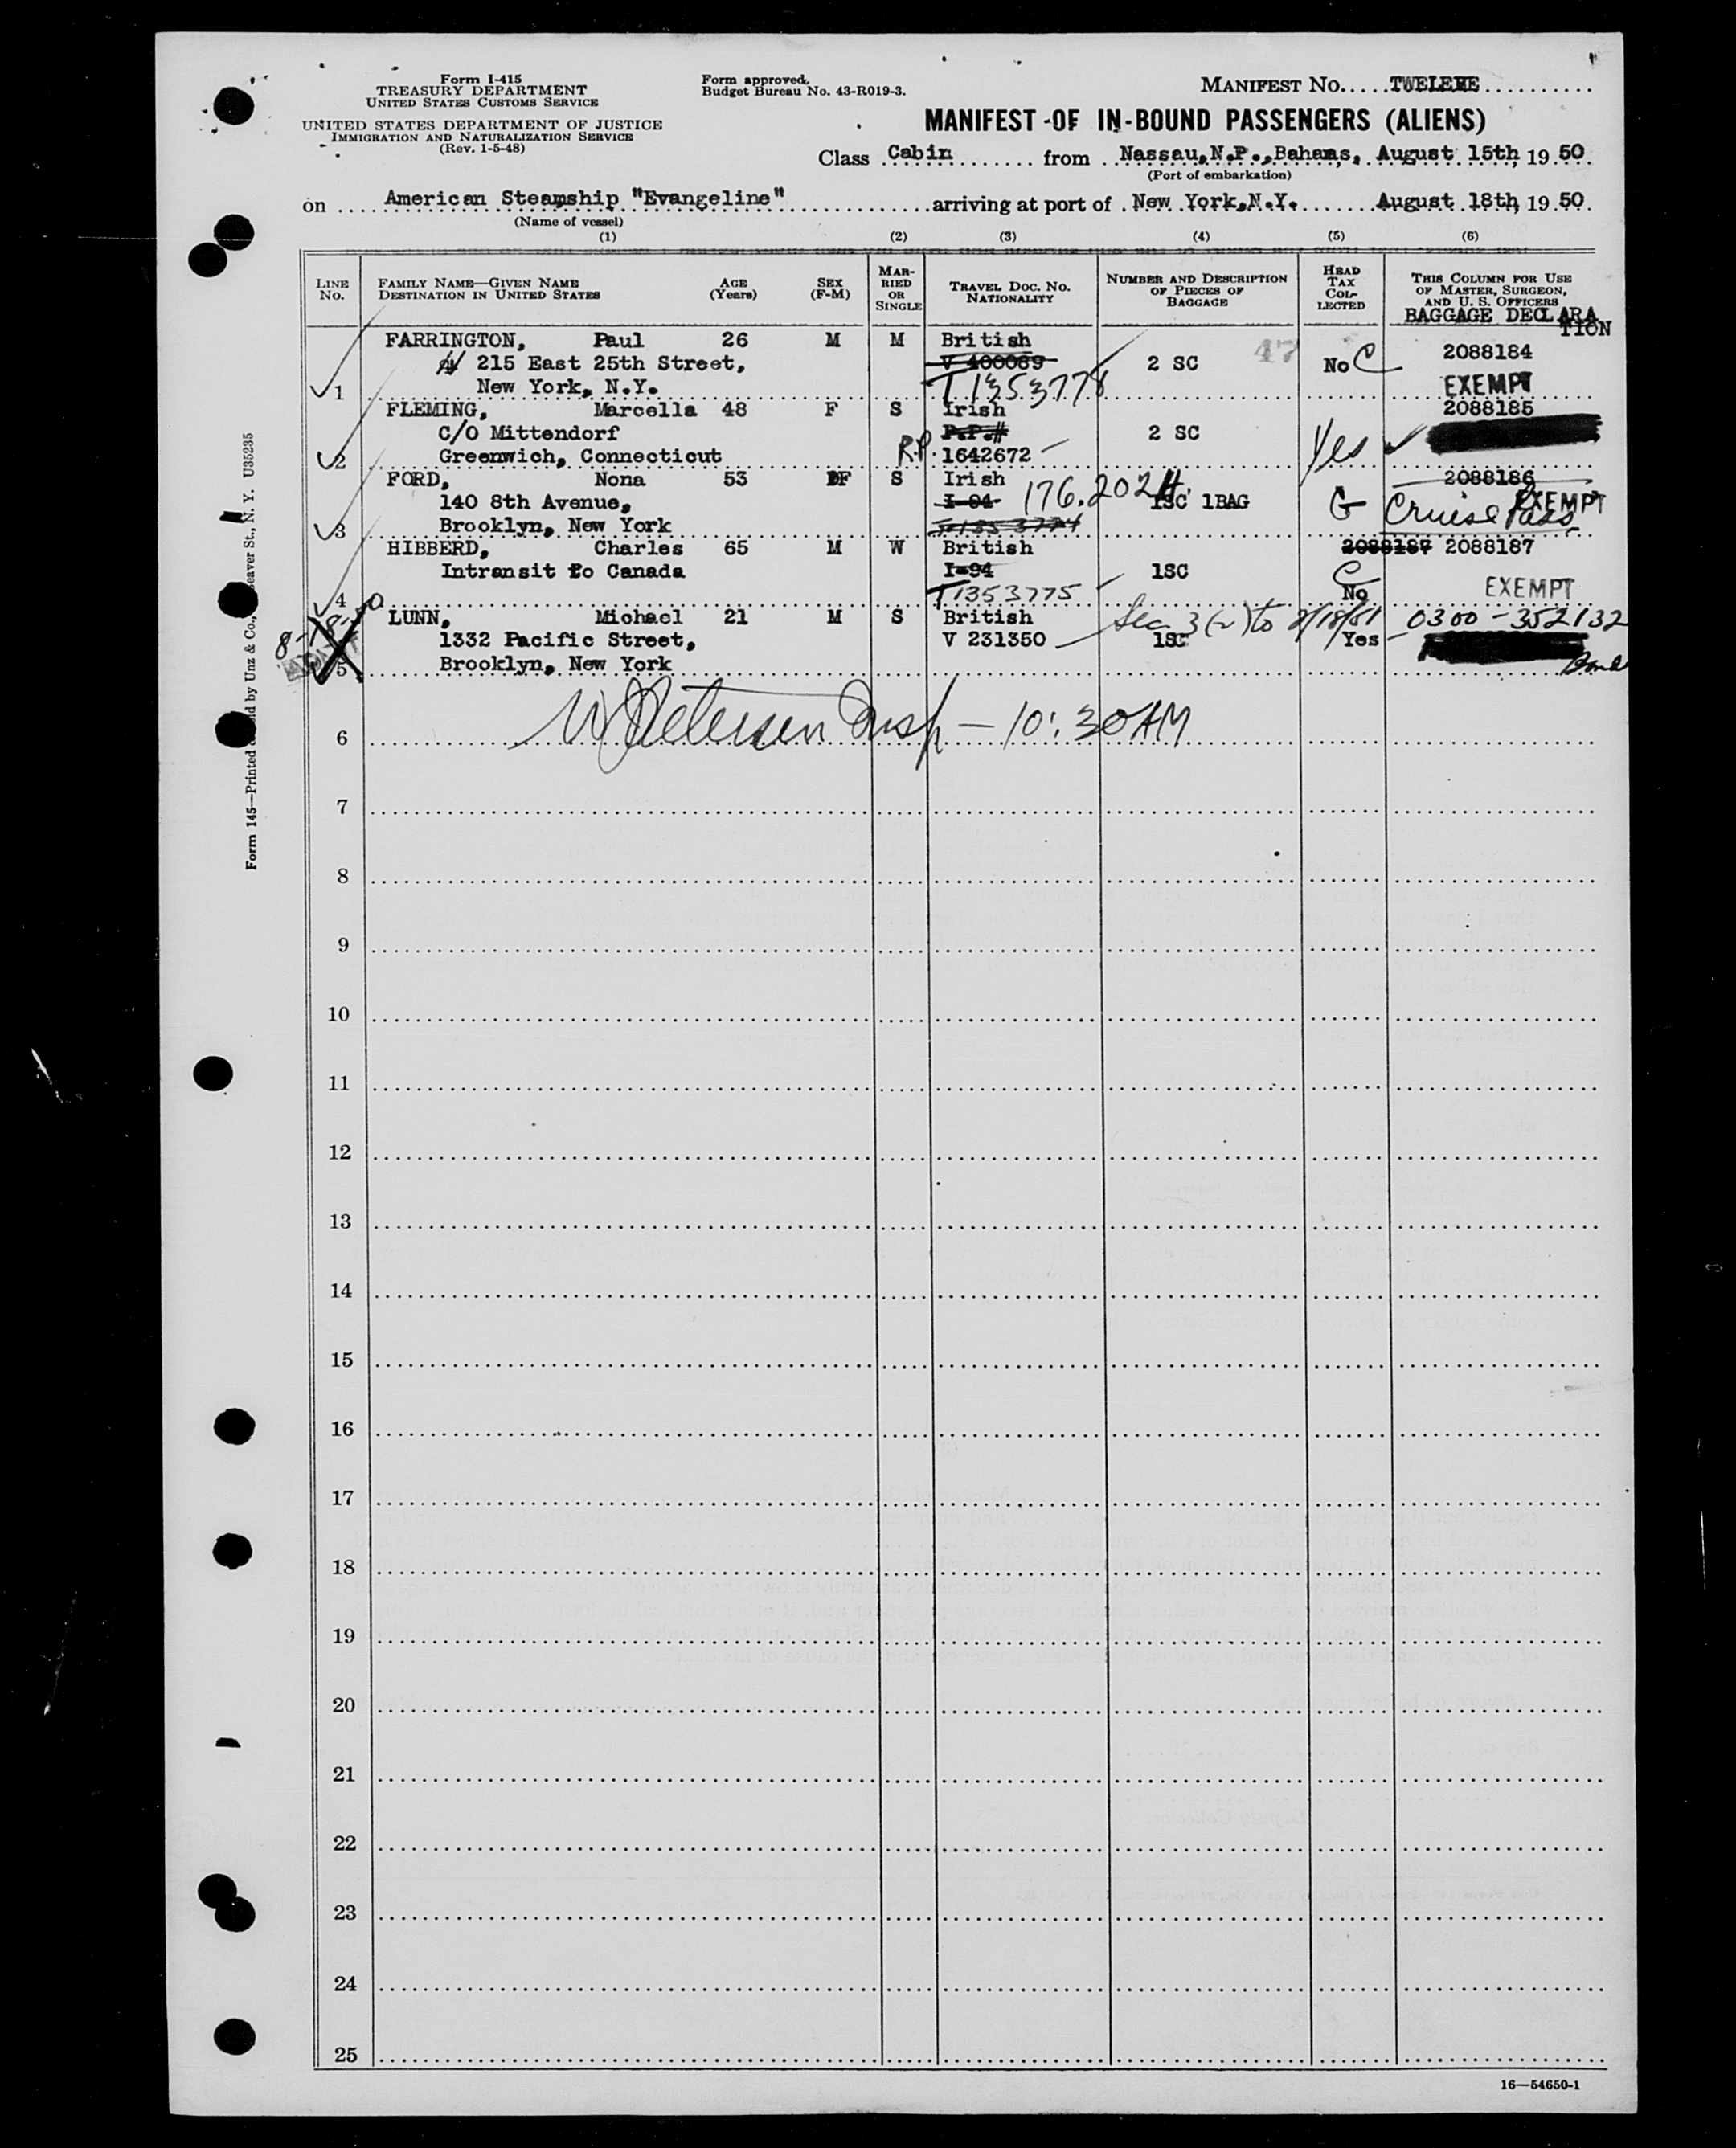 Form I-415
TREASURY DEPARTMENT
UNITED STATES CUSTOMS SERVICE
UNITED STATES DEPARTMENT OF JUSTICE
IMMIGRATION AND NATURALIZATION SERVICE
(Rev. 1-5-48)
Form approved.
Budget Bureau No. 43-R019-3.
MANIFEST No. TWELEVE
MANIFEST OF IN-BOUND PASSENGERS (ALIENS)
Class Cabin from Nassau,N.P.,Bahams, August 15th, 1950.
(Port of embarkation)
on American Steamship "Evangeline" arriving at port of New York,N.Y. August 18th, 1950.
(Name of vessel)
(1) (2) (3) (4) (5) (6)
LINE No. FAMILY NAME—GIVEN NAME DESTINATION IN UNITED STATES AGE (Years) SEX (F-M) MARRIED OR SINGLE TRAVEL DOC. NO. NATIONALITY NUMBER AND DESCRIPTION OF PIECES OF BAGGAGE HEAD TAX COLLECTED THIS COLUMN FOR USE OF MASTER, SURGEON, AND U. S. OFFICERS
BAGGAGE DECLARATION
FARRINGTON, Paul 26 M M British
215 East 25th Street, V 400089 2 SC 47 No C 2088184
1 New York, N.Y. T1353778 EXEMPT
FLEMING, Marcella 48 F S Irish 2088185
C/O Mittendorf P.P.# 2 SC Yes
2 Greenwich, Connecticut R.P. 1642672
FORD, Nona 53 F S Irish 2088186
140 8th Avenue, I-94 176.202 1SC 1BAG G Cruise Pass EXEMPT
3 Brooklyn, New York
HIBBERD, Charles 65 M W British 2088187 2088187
Intransit to Canada I-94 1SC C
4 T1353775 No EXEMPT
LUNN, Michael 21 M S British Sec 3(2) to 2/18/51 0300-352132
1332 Pacific Street, V 231350 1SC Yes
5 Brooklyn, New York Bond
6 Petersen Insp — 10:30 AM
7
8
9
10
11
12
13
14
15
16
17
18
19
20
21
22
23
24
25
16—54650-1